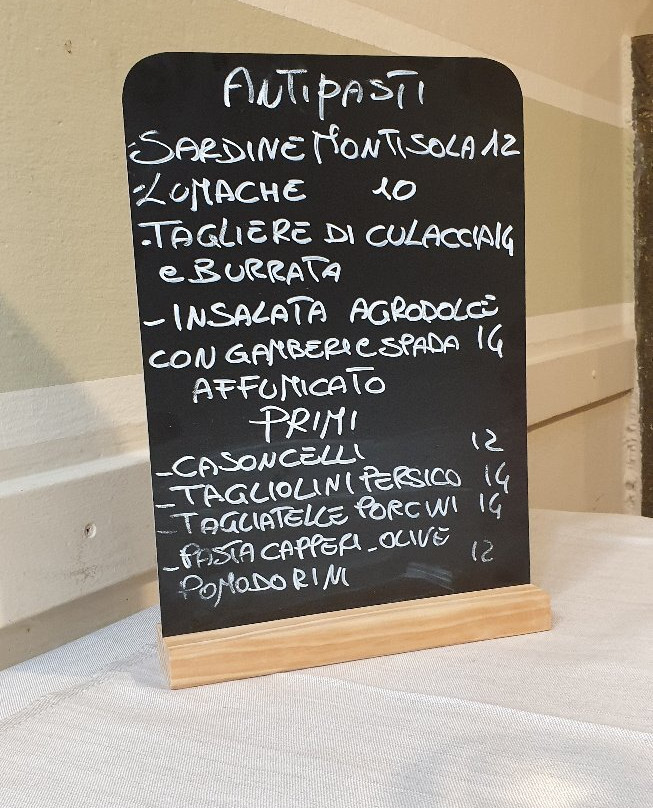 ANTIPASTI
-SARDINE MONTISOLA 12
-LUMACHE 10
-TAGLIERE DI CULACCIA 14
e BURRATA
-INSALATA AGRODOLCE
CON GAMBERI e SPADA 14
AFFUMICATO
PRIMI
-CASONCELLI 12
-TAGLIOLINI PERSICO 14
-TAGLIATELLE PORCINI 14
-PASTA CAPPERI-OLIVE 12
POMODORINI